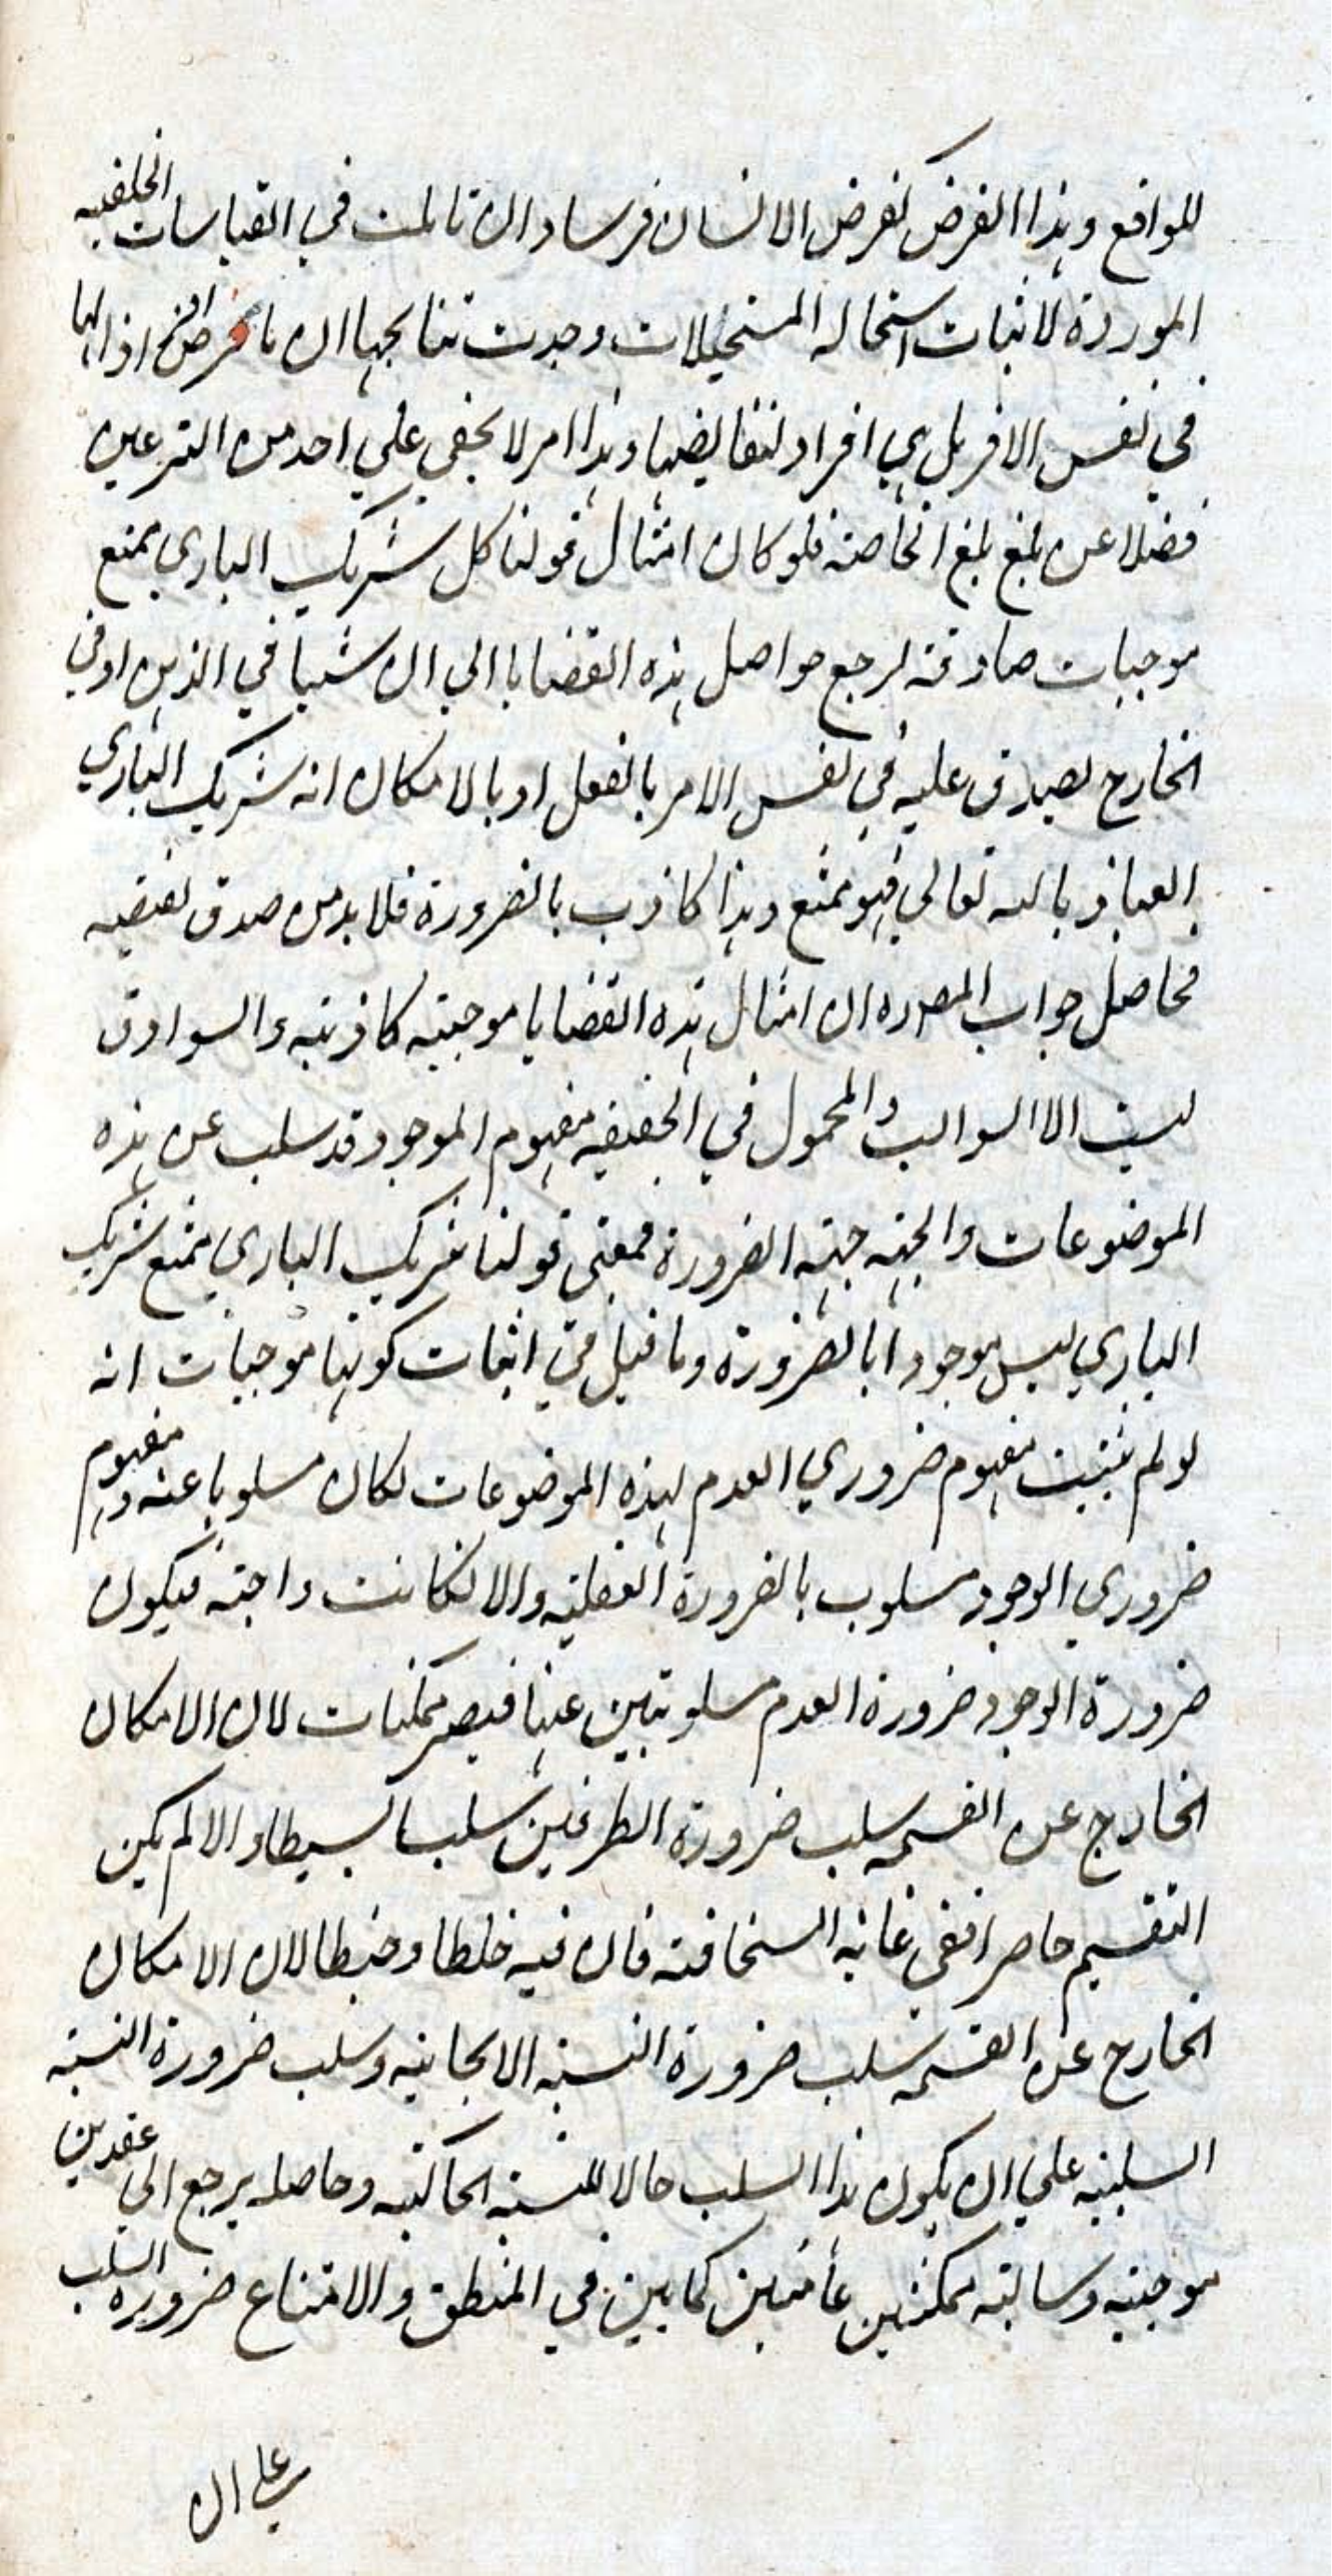 للواقع وهذا الفرض كفرض الانسان فرسا وان تاملت في القياسات الخلفيه
الموردة لاثبات استحاله المستحيلات وجدت نتايجها ان ما فرض افرادا لها
في نفس الامر بل هي افراد لنقايضها وهذا امر لا يخفي علي احد من المترعين
فضلا عمن بلغ مبلغ الخاصة فلو كان امثال قولنا كل شريك الباري ممتنع
موجبات صادقة لرجع حواصل هذه القضايا الي ان شيا في الذهن او في
الخارج يصدق عليه في نفس الامر بالفعل او بالامكان انه شريك الباري
العياذ بالله تعالي فهو ممتنع وهذا كاذب بالضرورة فلا بد من صدق نقيضه
فحاصل جواب المص ره ان امثال هذه القضايا موجبته كاذبته والسوادق
ليست الا السوالب والمحمول في الحقيقه مفهوم الموجود قد سلب عن هذه
الموضوعات والجهه جهته الضرورة فمعني قولنا شريك الباري ممتنع شريك
الباري ليس موجودا بالضرورة وما قيل في اثبات كونها موجبات انه
لو لم يثبت مفهوم ضروري العدم لهذه الموضوعات لكان مسلوبا عنه ومفهوم
ضروري الوجود مسلوب بالضرورة العقليه والا لكانت واجبة فيكون
ضرورة الوجود ضرورة العدم مسلوبتين عنها فيصير ممكنات لان الامكان
الخارج عن القسمه سلب ضرورة الطرفين سلبا بسيطا والا لم يكن
التقسيم حاصرا ففي غايه السخافته فان فيه خلطا وخبطا لان الامكان
الخارج عن القسمه سلب ضرورة النسبه الايجابيه وسلب ضرورة النسبه
السلبيه علي ان يكون هذا السلب حالا للنسبه الحاكيه وحاصله يرجع الي عقدين
موجبيه وسالبته ممكنتين عامتين كما بين في المنطق والامتناع ضرورة السلب
علي ان